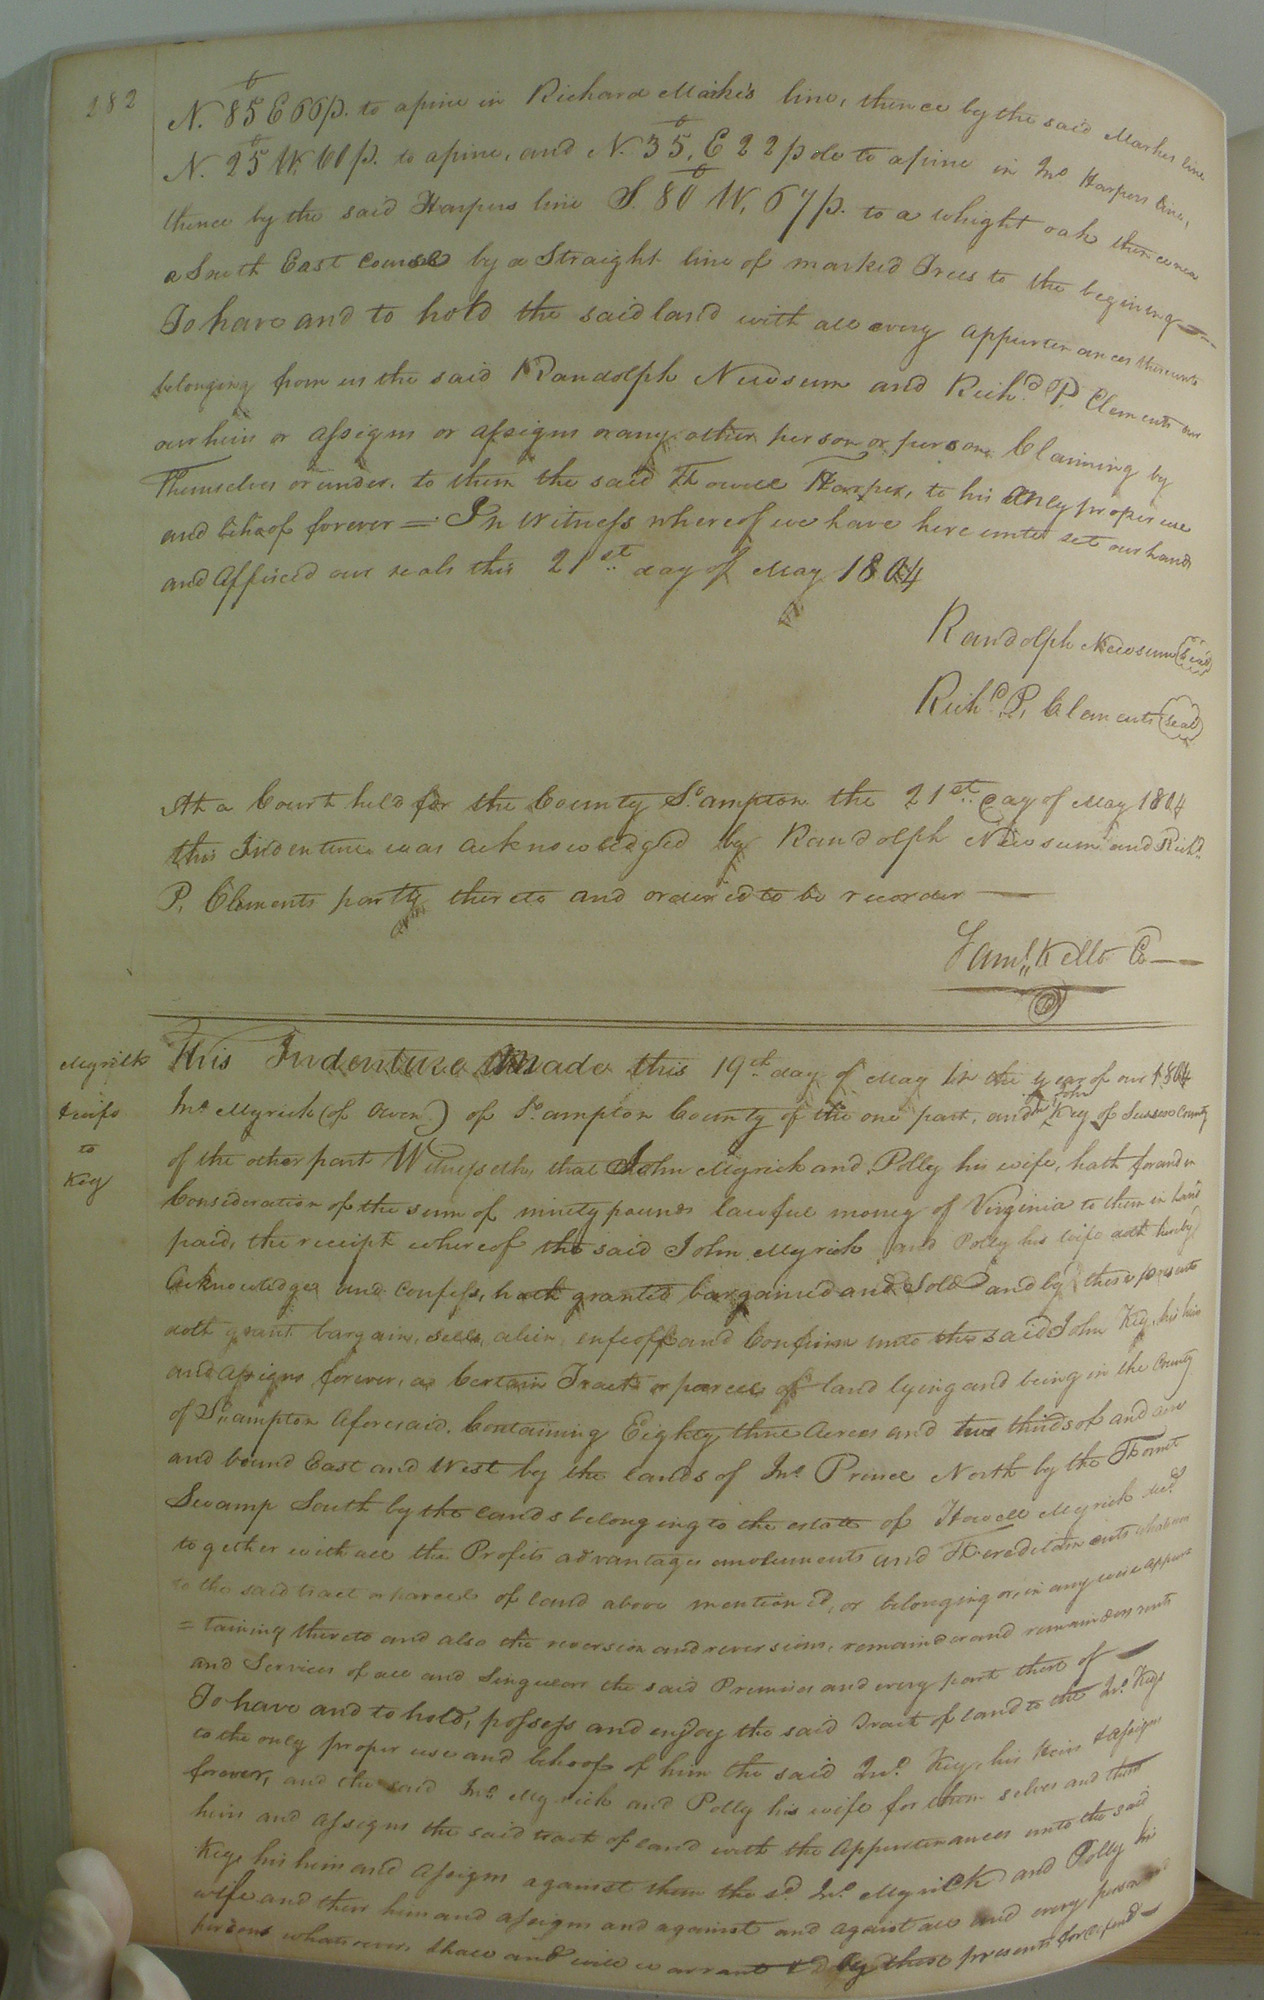 282
N. 85° E 66 p. to a pine in Richard Marks's line, thence by the said Markes line
N. 25° W. 60 p. to a pine, and N. 35°. E 22 pole to a pine in Jno Harpers line,
thence by the said Harpers line S. 80° W, 67 p. to a whight oak thence near
a South East course by a Straight line of marked Trees to the begining
To have and to hold the said land with all every appurtenances thereunto
belonging from us the said Randolph Newsum and Richd. P. Clements our
our heirs or assigns or assigns or any other person or persons Claiming by
Themselves or under. to them the said Howell Harper, to his only proper use
and behoof forever = In Witness whereof we have here unto set our hands
and affixed our seals this 21st. day of May 1804
Randolph Newsum (Seal)
Richd. P. Clements (Seal)
At a Court held for the County So.ampton the 21st. day of May 1804
this Indenture was acknowledged by Randolph Newsum and Richd
P. Clements party thereto and ordered to be recorder
Saml. Kello Co
Myrick
& wife
to
Key
This Indenture Made this 19th day of May in the year of our 1804
Jno Myrick (of Owen) of So.ampton County of the one part, and John Key of Sussex County
of the other part Witnesseth, that John Myrick and Polly his wife, hath for and in
Consideration of the sum of ninety pounds lawfull money of Virginia to them in hand
paid, the receipt whereof the said John Myrick and Polly his wife doth hereby
Acknowledges and confess, hath granted bargained and Sold and by these presents
doth grant, bargain, sell, alien enfeoff and Confirm unto the said John Key, his heirs
and assigns forever, a Certain Tract or parcel of land lying and being in the County
of So.ampton Aforesaid, Containing Eighty three Acres and two thirds of and acre
and bound East and West by the lands of Jno. Prince North by the Hornet
Swamp South by the lands belonging to the estate of Howell Myrick decd
together with all the Profits advantages emoluments and Hereditaments whatsoever
to the said tract or parcel of land above mentioned, or belonging or in any wise appur
= taining thereto and also the reversion and reversions, remainder and remainders rents
and Services of all and Singular the said Premises and every part there of
To have and to hold, possess and enjoy the said Tract of land to the Jno. Key
to the only proper use and behoof of him the said Jno. Key, his Heirs & assigns
forever, and the said Jno. Myrick and Polly his wife for them selves and their
heirs and assigns the said tract of land with the Appurtenances unto the said
Key, his heirs and assigns against them the sd. Jno. Myrick and Polly his
wife and their heirs and assigns and against and against all and every person
persons whatsoever, shall and will warrant & by these presents for defend